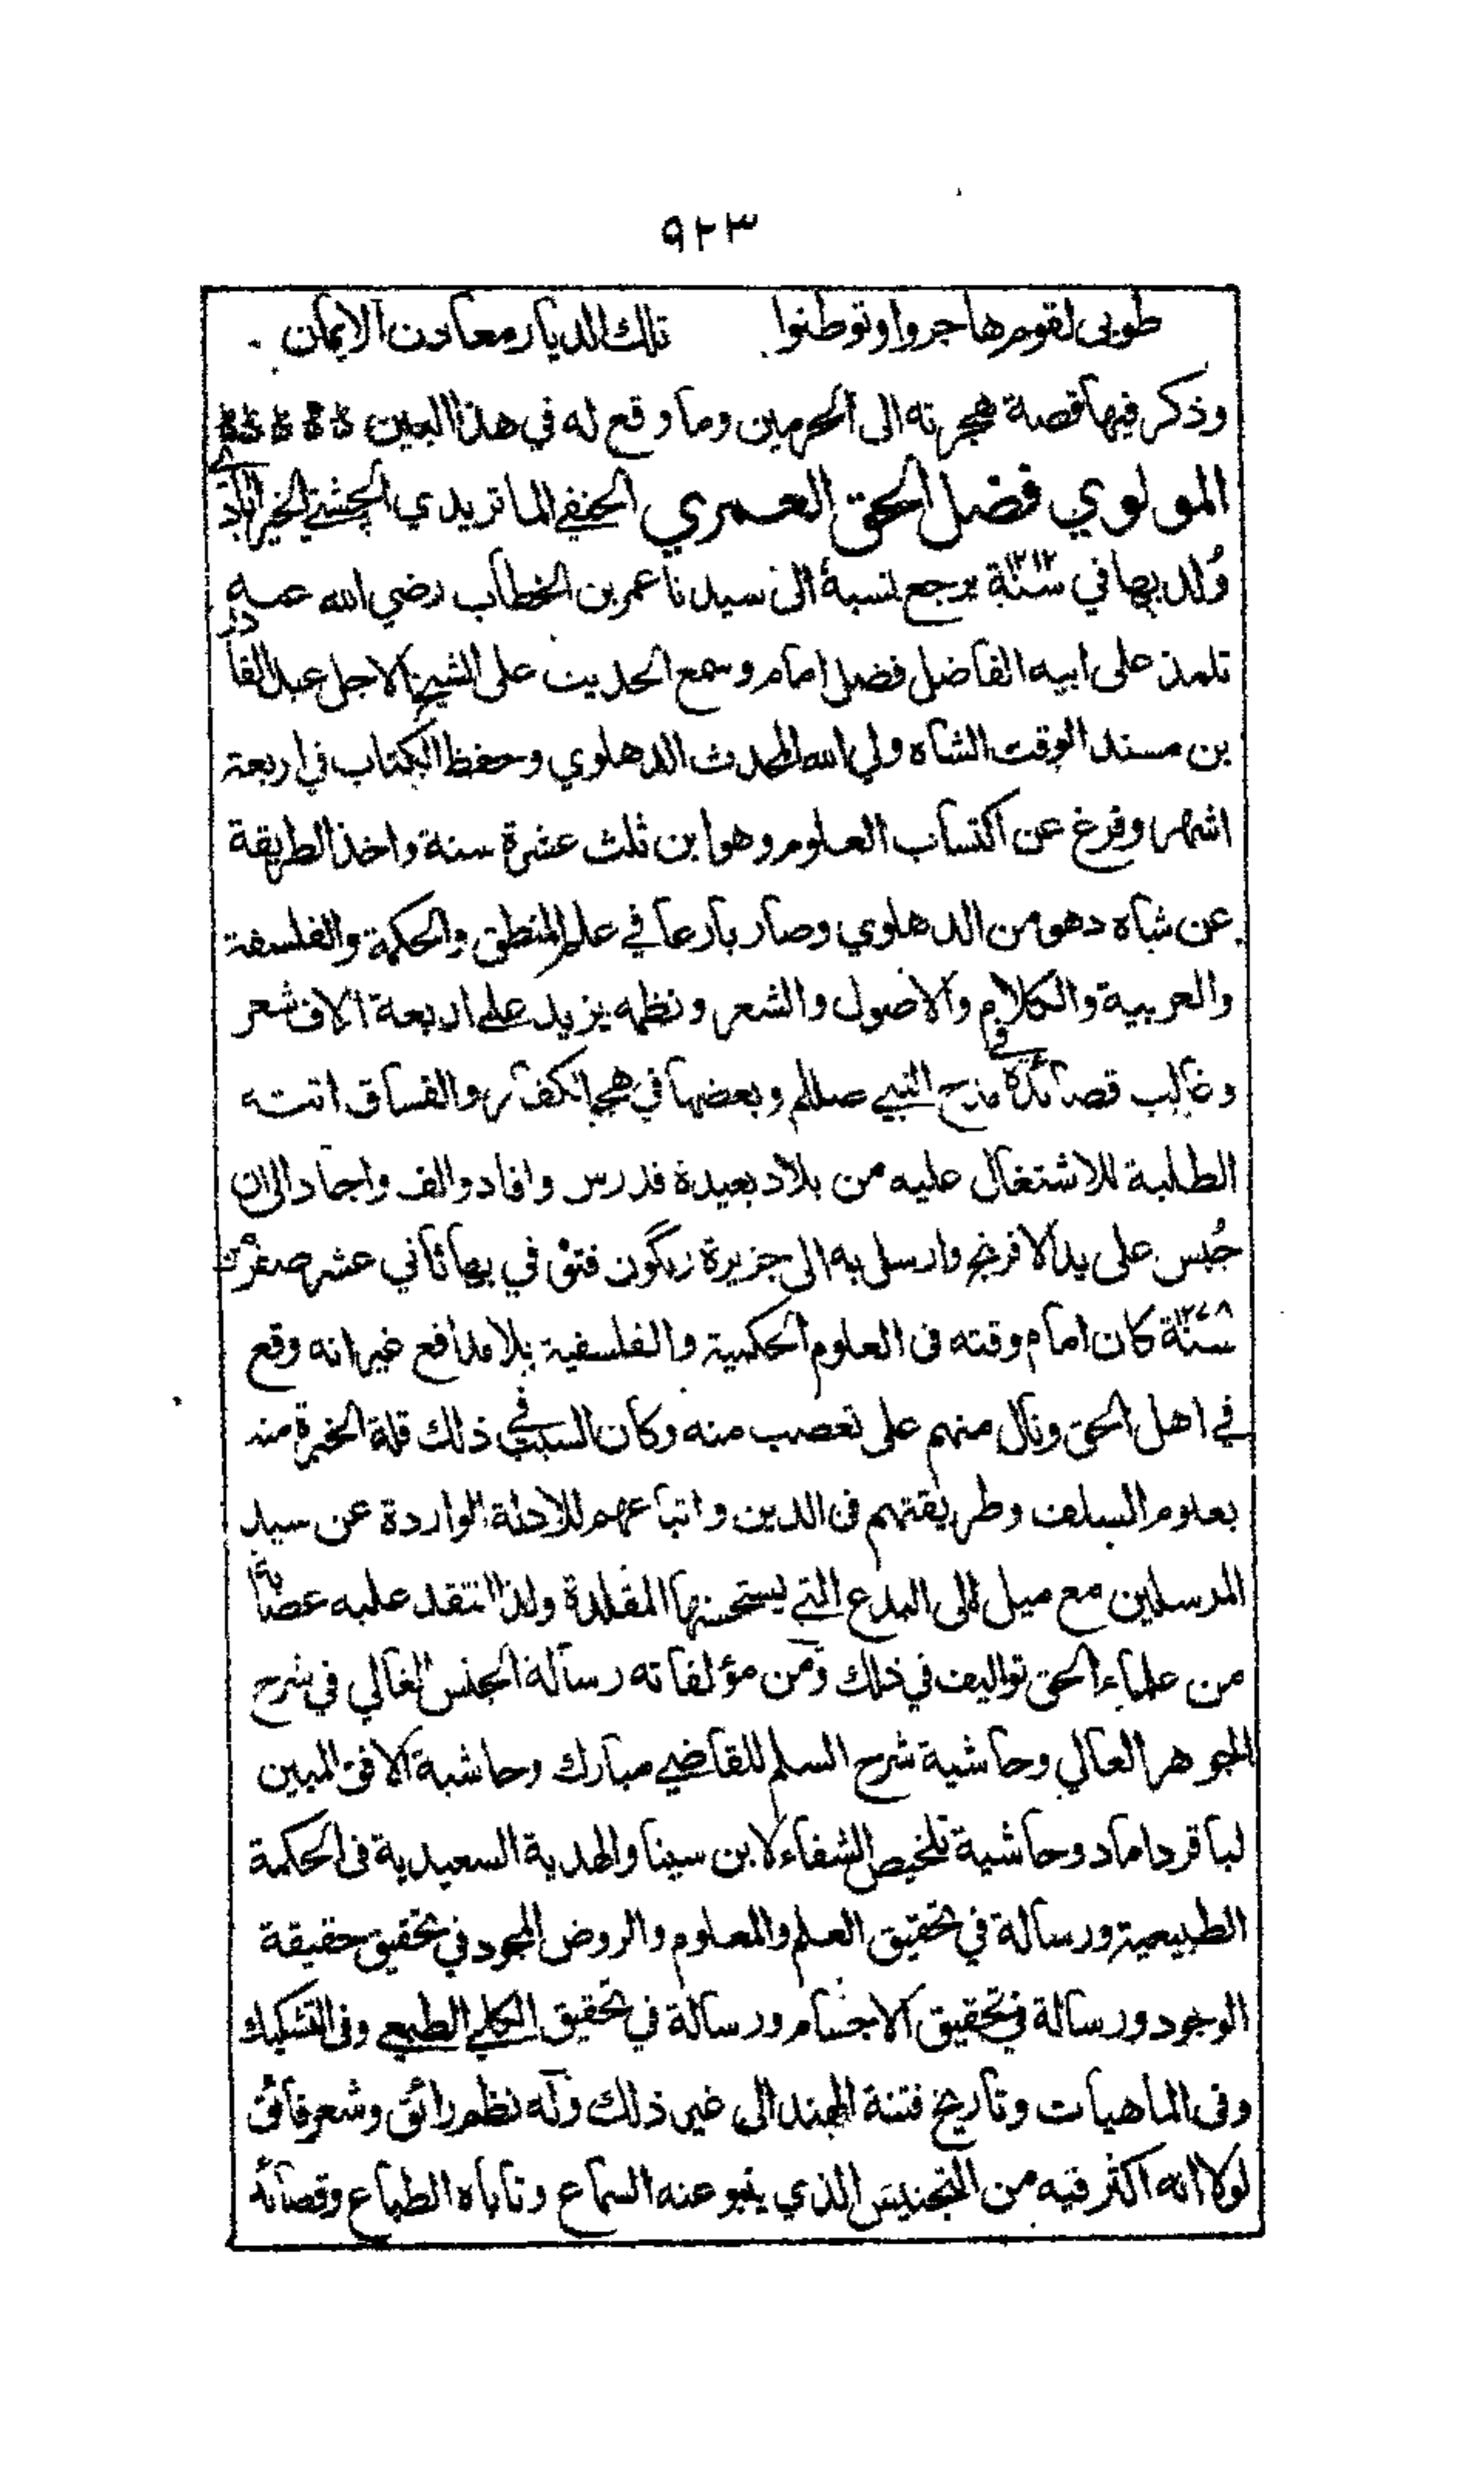 ٩٢٣
طوبى لقوم هاجروا وتوطنوا تلك الديار معادن الايمان
وذكر فيها قصة هجرته الى الحرمين وما وقع له في هذا البين
المولوي فضل الحق العمري الحنفي الماتريدي الچشتي الخيرابادي
وُلد بها في سنة ١٢١٢ يرجع نسبة الى سيدنا عمر بن الخطاب رضي الله عنه
تلمذ على ابيه الفاضل فضل امام وسمع الحديث على الشيخ الاجل عبد القادر
بن مسند الوقت الشاه ولي الله المحدث الدهلوي وحفظ الكتاب في اربعة
اشهر وفرغ عن اكتساب العلوم وهو ابن ثلث عشرة سنة واخذ الطريقة
عن شاه دهومن الدهلوي وصار بارعا في علم المنطق والحكمة والفلسفة
والعربية والكلام والاصول والشعر ونظمه يزيد على اربعة الاف شعر
وغالب قصائده في مدح النبي صللم وبعضها في هجو الكفار والفساق اتته
الطلبة للاشتغال عليه من بلاد بعيدة فدرس وافاد والف واجاد الى ان
حُبس على يد الافرنج وارسل به الى جزيرة رنگون فتوفي بها ثاني عشر صفر
سنة ١٢٧٨ كان امام وقته فى العلوم الحكمية والفلسفية بلا مدافع غير انه وقع
في اهل الحق ونال منهم على تعصب منه وكان السبب في ذلك قلة الخبرة منه
بعلوم السلف وطريقتهم فى الدين واتباعهم للادلة الواردة عن سيد
المرسلين مع ميل الى البدع التي يستحسنها المقلدة ولذا انتقد عليه عصابة
من علماء الحق تواليف في ذلك ومن مؤلفاته رسالة الجنس الغالي في شرح
الجوهر العالي وحاشية شرح السلم للقاضي مبارك وحاشية الافق المبين
لباقر داماد وحاشية تلخيص الشفاء لابن سينا والهدية السعيدية فى الحكمة
الطبيعية ورسالة في تحقيق العلم والمعلوم والروض المجود في تحقيق حقيقة
الوجود ورسالة في تحقيق الاجسام ورسالة في تحقيق الكلي الطبعي وفى التشكيك
وفى الماهيات وتاريخ فتنة الهند الى غير ذلك وله نظم رائق وشعر فائق
لولا انه اكثر فيه من التجنيس الذي ينبو عنه السماع وتاباه الطباع وقصائد